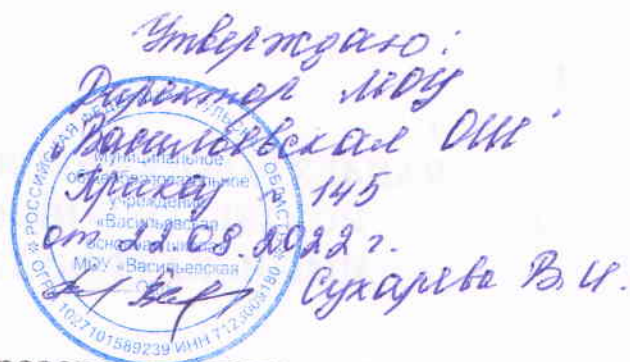 Утверждаю:
Директор МОУ
"Васильевская ОШ"
Приказ № 145
от 22.08.2022 г.
Сухарева В.И.
РОССИЙСКАЯ ФЕДЕРАЦИЯ ТУЛЬСКАЯ ОБЛАСТЬ
муниципальное
общеобразовательное
учреждение
«Васильевская
основная школа»
МОУ «Васильевская
ОГРН 1027101589239 ИНН 7123009180